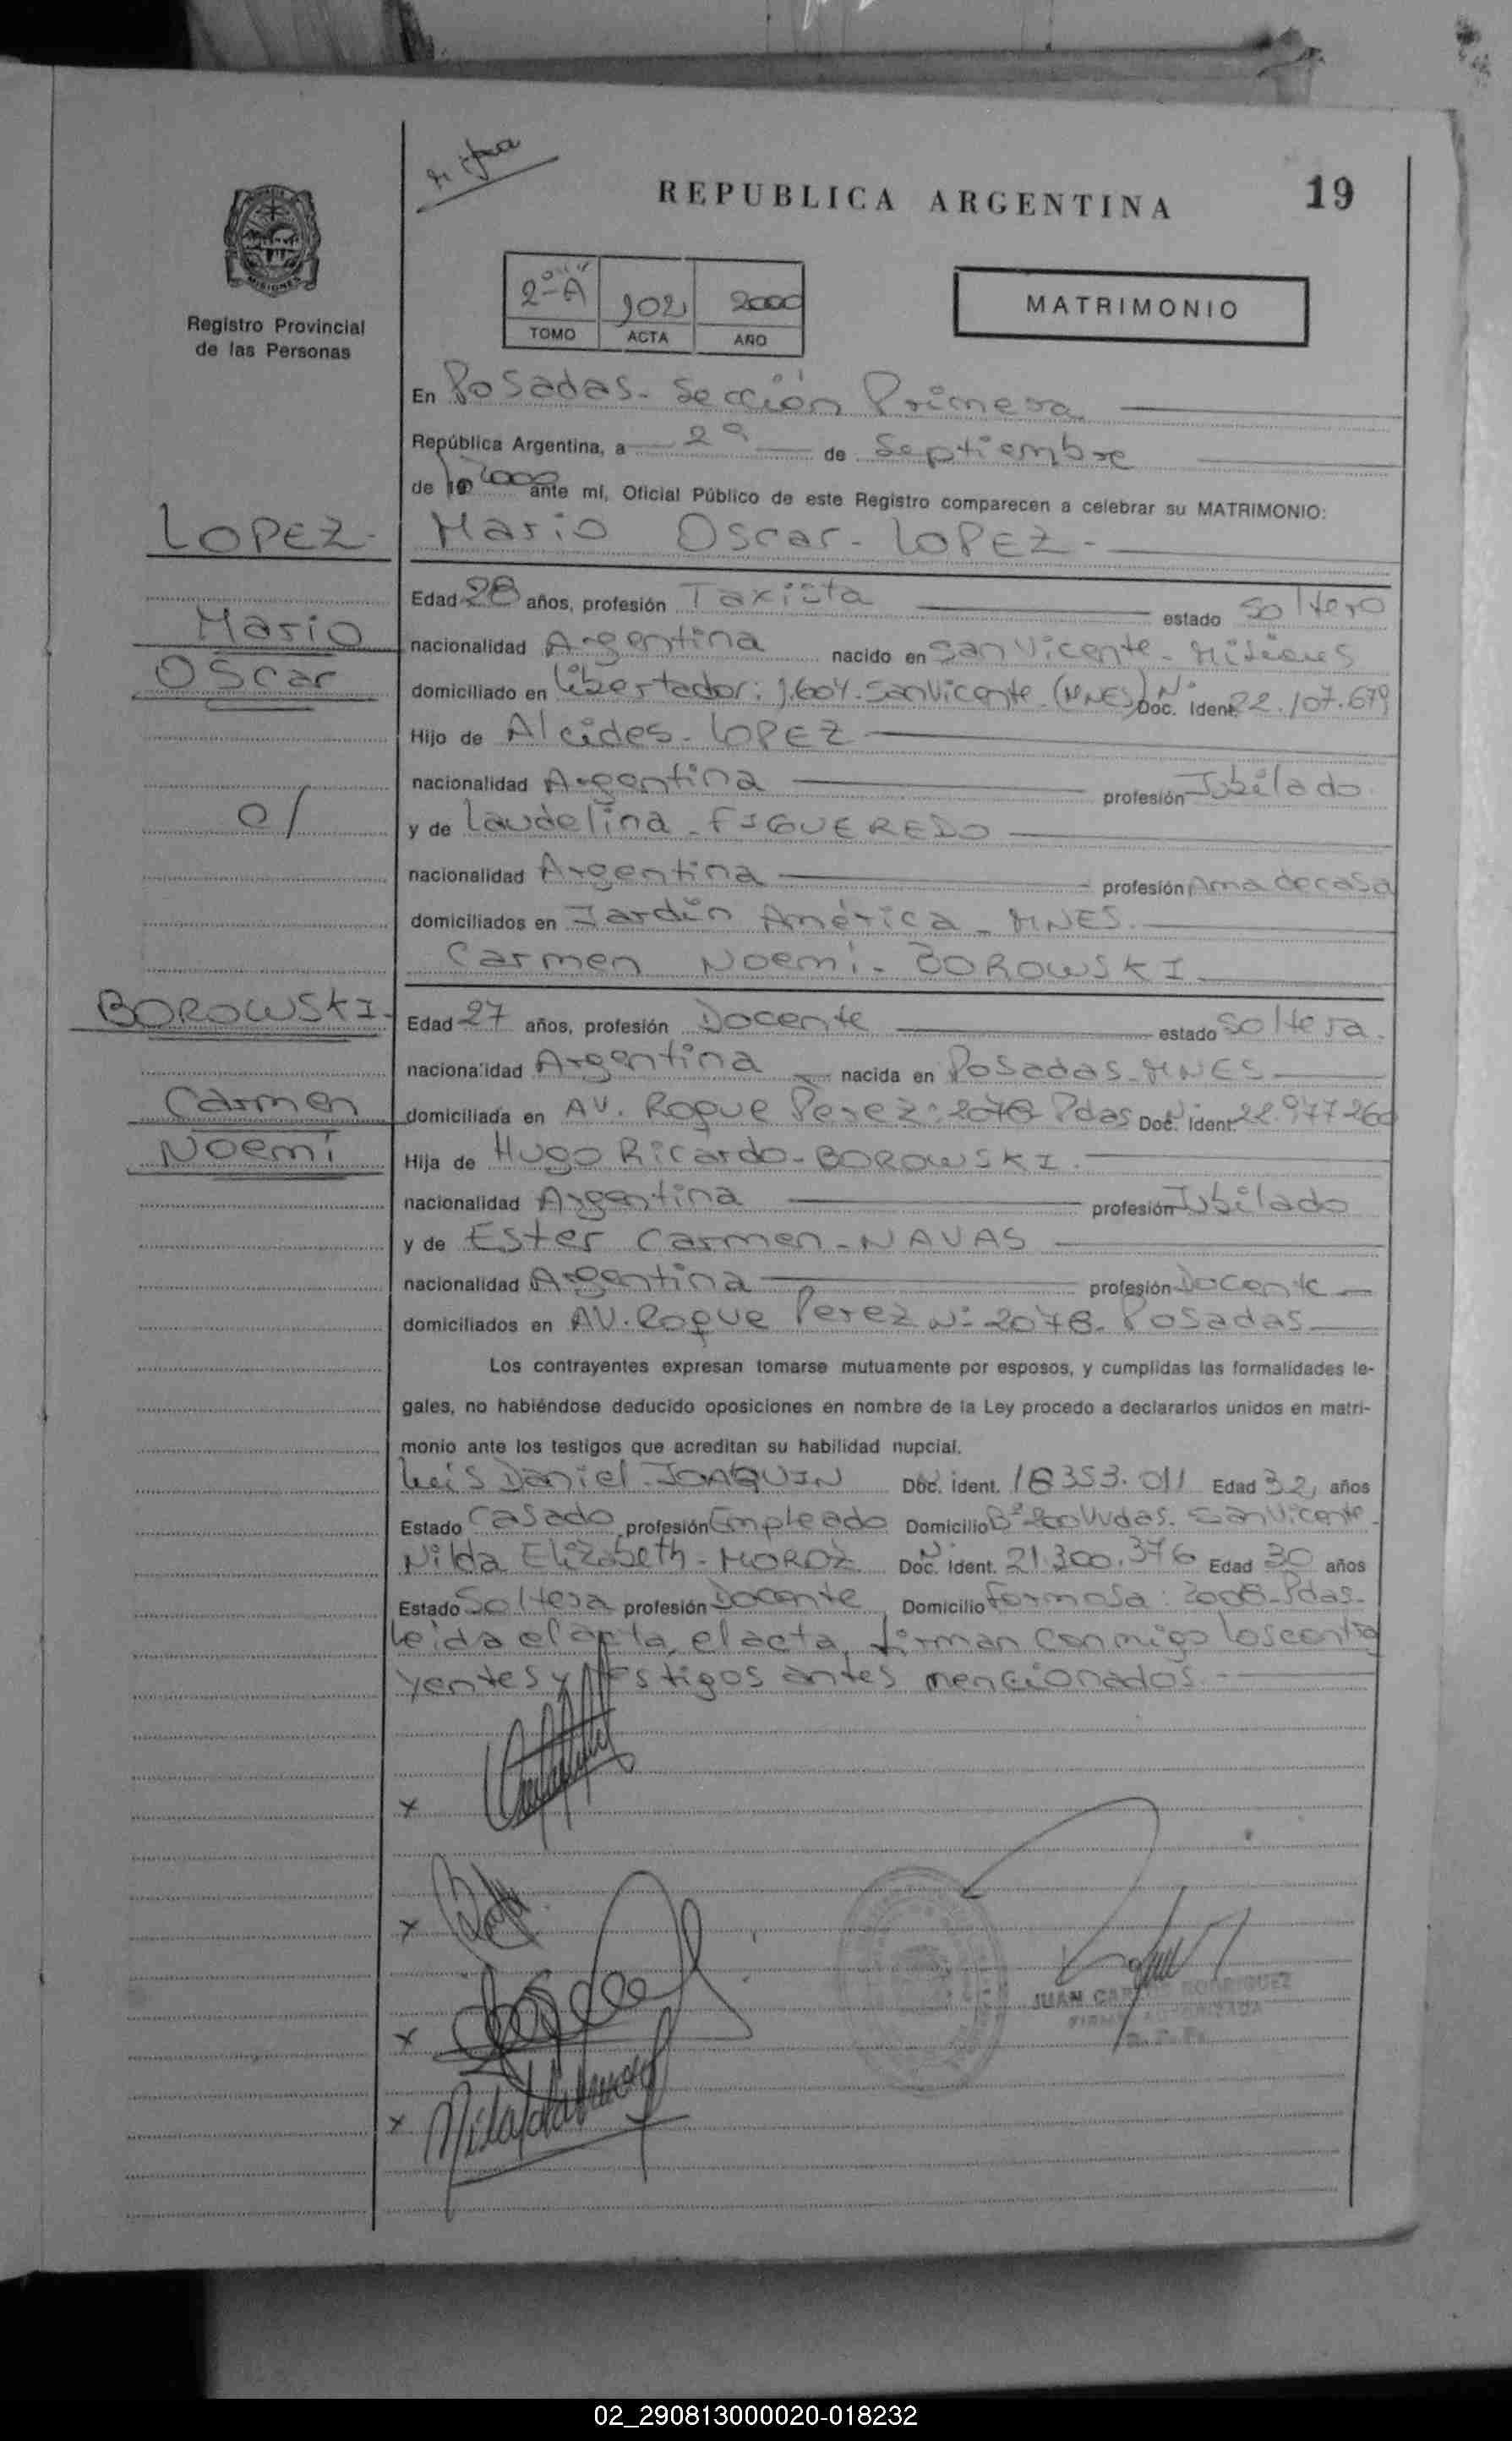 REPUBLICA ARGENTINA
19
MISIONES
Registro Provincial
de las Personas
2º "A" 902 2000
TOMO ACTA AÑO
MATRIMONIO
En Posadas - Sección Primera
República Argentina, a de Septiembre
de 2000 ante mí, Oficial Público de este Registro comparecen a celebrar su MATRIMONIO:
LOPEZ -
Mario Oscar - LOPEZ -
Edad 28 años, profesión Taxista estado Soltero
Mario
nacionalidad Argentina nacido en San Vicente - Misiones
Oscar
domiciliado en Libertador: 1.604 - San Vicente (MNES) Nº Doc. Ident. 22.107.679
Hijo de Alcides - LOPEZ
nacionalidad Argentina profesión Jubilado
c/
y de Laudelina - FIGUEREDO
nacionalidad Argentina profesión Ama de casa
domiciliados en Jardín América - MNES.
Carmen Noemí - BOROWSKI
BOROWSKI -
Edad 27 años, profesión Docente estado Soltera.
nacionalidad Argentina nacida en Posadas - MNES
Carmen
domiciliada en AV. Roque Perez: 2078 - Pdas Nº Doc. Ident. 22.977.260
Noemí
Hija de Hugo Ricardo - BOROWSKI.
nacionalidad Argentina profesión Jubilado
y de Ester Carmen - NAVAS
nacionalidad Argentina profesión Docente
domiciliados en AV. Roque Perez Nº 2078 - Posadas
Los contrayentes expresan tomarse mutuamente por esposos, y cumplidas las formalidades le-
gales, no habiéndose deducido oposiciones en nombre de la Ley procedo a declararlos unidos en matri-
monio ante los testigos que acreditan su habilidad nupcial.
Luis Daniel - JOAQUIN Doc. Ident. 18353.011 Edad 32 años
Estado Casado profesión Empleado Domicilio Bº 200 Vvdas. San Vicente -
Nilda Elizabeth - MOROZ Nº Doc. Ident. 21.300.376 Edad 30 años
Estado Soltera profesión Docente Domicilio Formosa: 2008 - Pdas -
Leida el acta, el acta, firman conmigo los contra
yentes y testigos antes mencionados -
x
x
x
x
JUAN CARLOS RODRIGUEZ
FIRMA AUTORIZADA
02_290813000020-018232